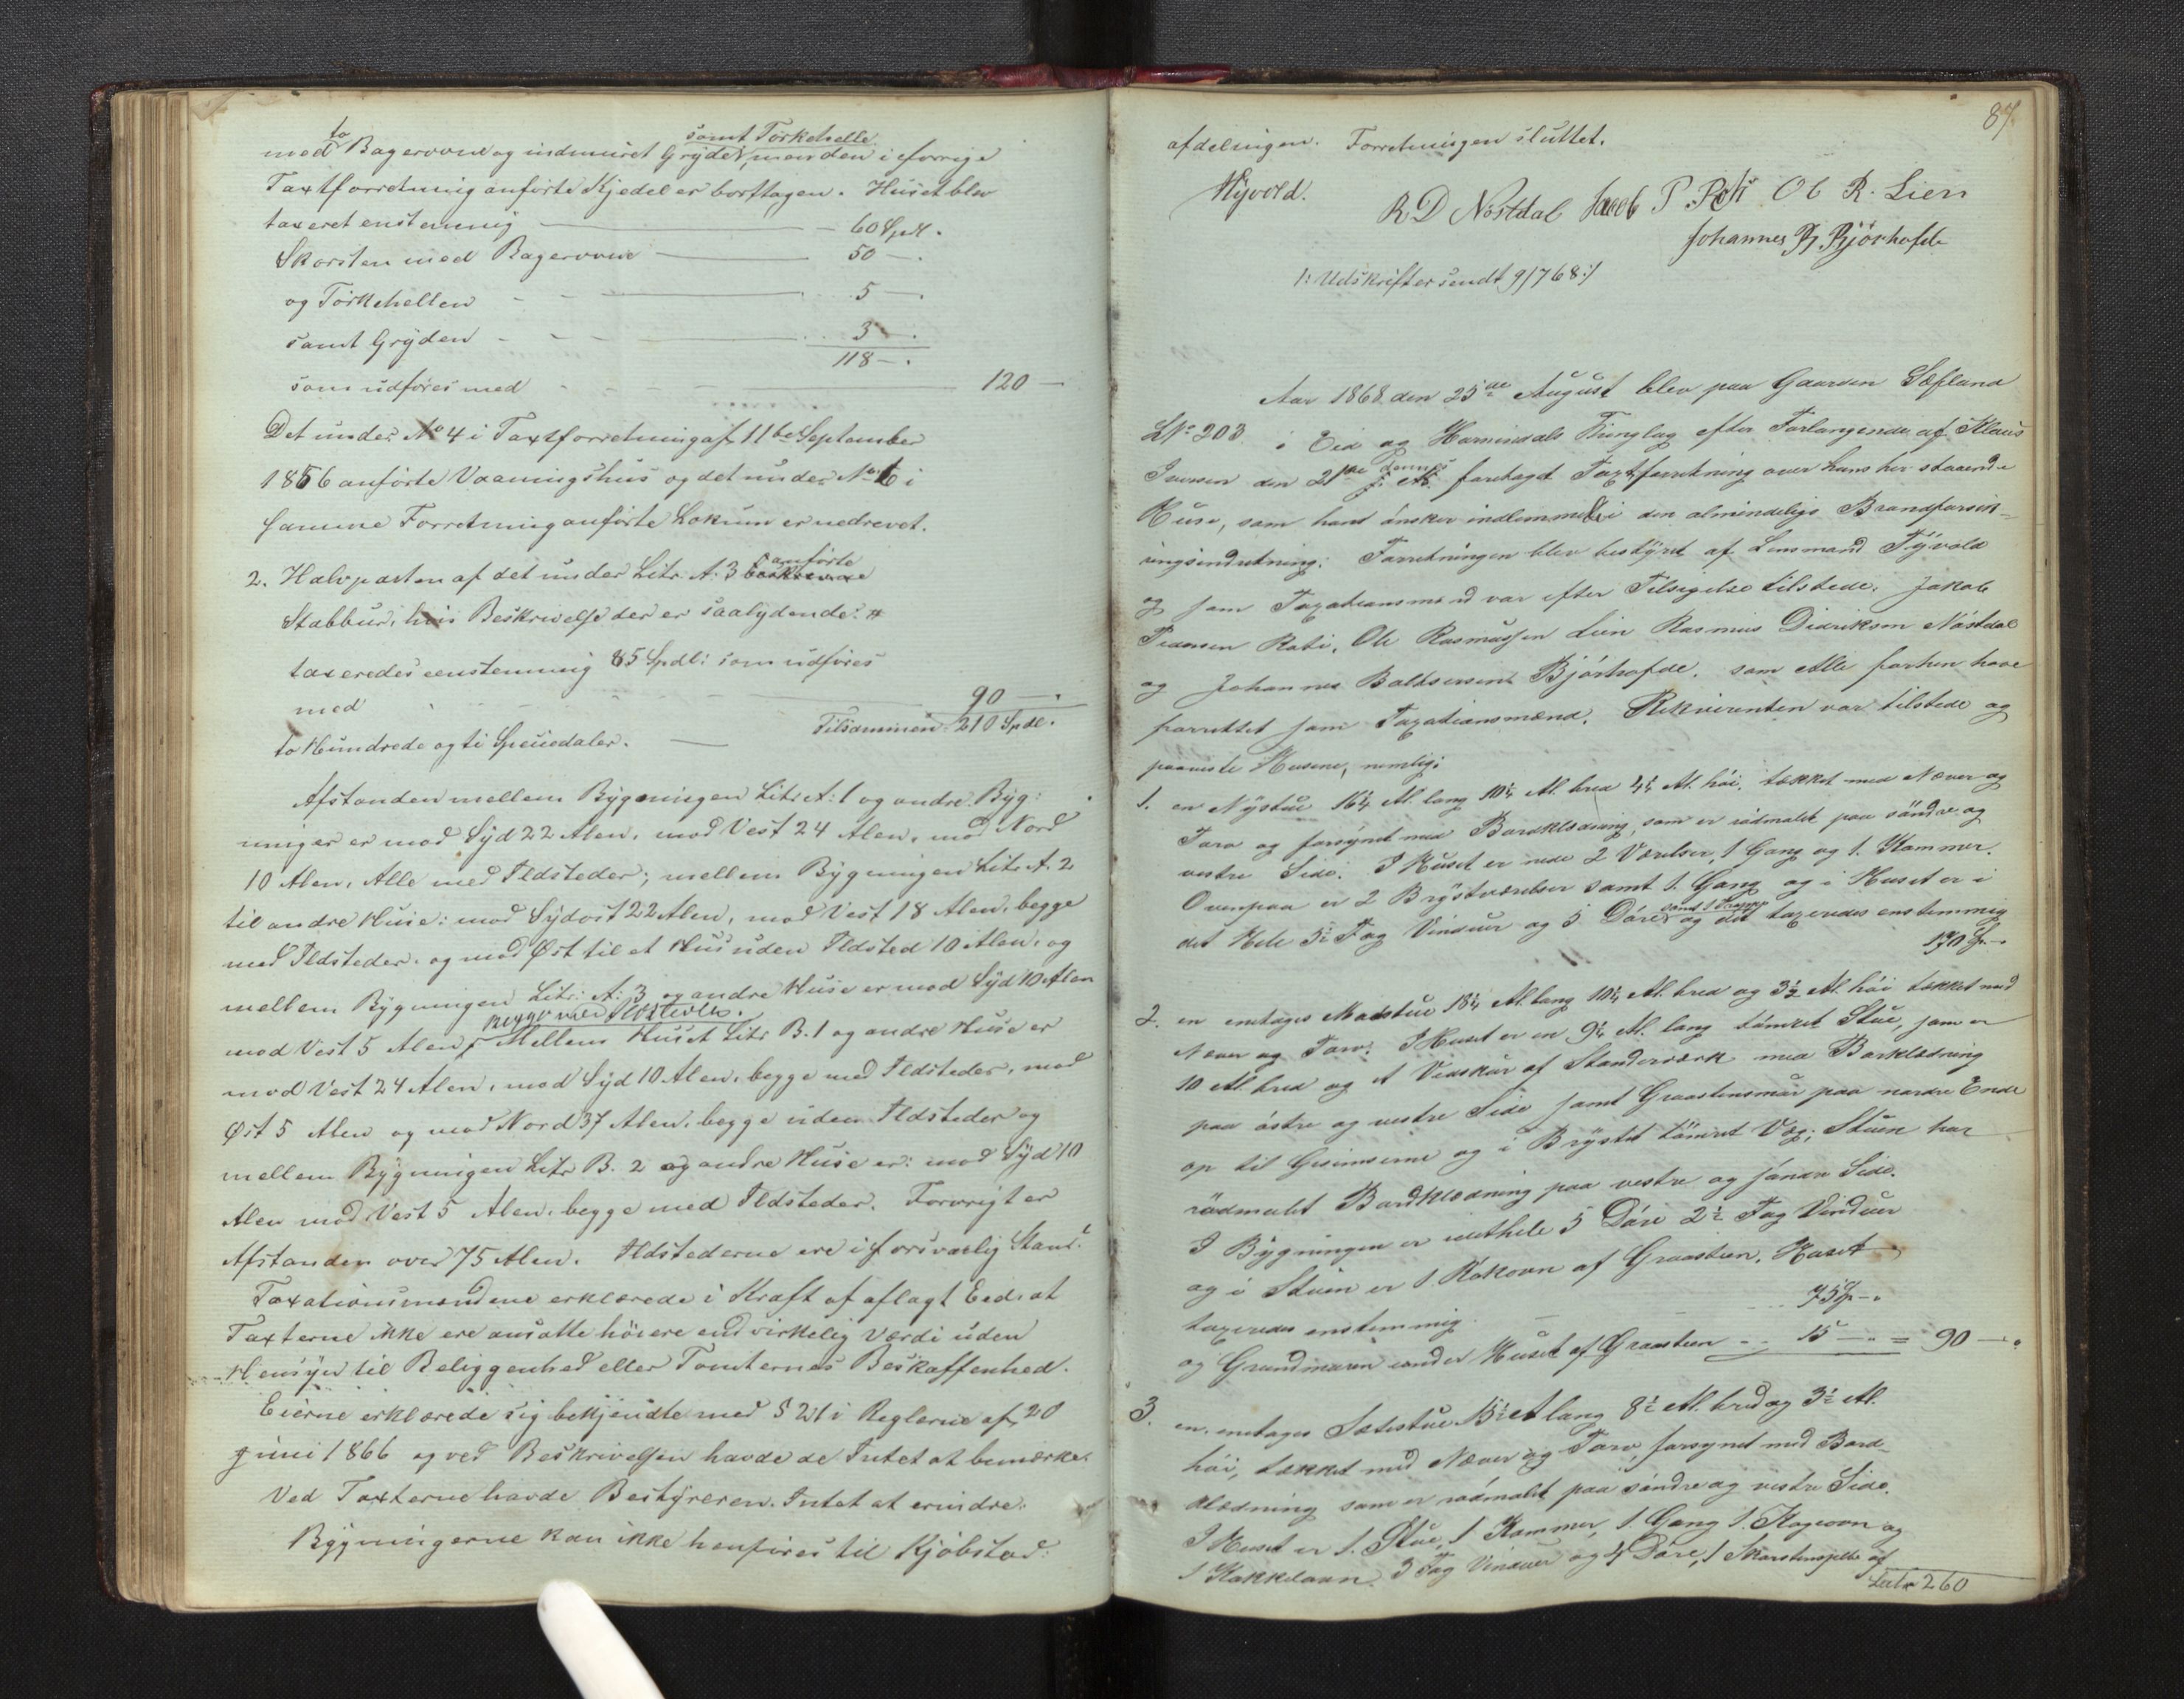 to samt Tørkehelle
med Bagerovne og indmuret Gryde, men den i forrige
Taxtforretning anførte Kjedel er borttagen. Huset blev
taxeret enstemmig — 60 Spdl.
Skorsten med Bagerovne — 50 —.
og Tørkehellen — 5 —.
samt Gryden — 3 —.
118 —.
som udføres med — 120 —
Det under No 4 i Taxtforretning af 11te September
1856 anførte Vaaningshus og det under No 6 i
samme Forretning anførte Lokum er nedrevet.
2. Halvparten af det under Litr. A: 3 anførte
Stabbur, hvis Beskrivelse der er saalydende:
taxeredes eenstemmig 85 Spdl: som udføres
med — 90 —.
to Hundrede og ti Speciedaler. — Tilsammen 210 Spdl.
Afstanden mellem Bygningen Litr A: 1 og andre Byg:
ninger er mod Syd 22 Alen, mod Vest 24 Alen, mod Nord
10 Alen, Alle med Ildsteder; mellem Bygningen Litr. A. 2
til andre Huse: mod Sydost 22 Alen, mod Vest 18 Alen, begge
med Ildsteder, og mod Øst til et Hus uden Ildsted 10 Alen, og
mellem Bygningen Litr. A: 3 og andre Huse er mod Syd 10 Alen
begge med Ildsteder.
mod Vest 5 Alen, Mellem Huset Litr B. 1 og andre Huse er
mod Vest 24 Alen, mod Syd 10 Alen, begge med Ildsteder, mod
Øst 5 Alen og mod Nord 37 Alen, begge uden Ildsteder og
mellem Bygningen Litr B. 2 og andre Huse er: mod Syd 10
Alen mod Vest 5 Alen, begge med Ildsteder. Forøvrigt er
Afstanden over 75 Alen. Ildstederne ere i forsvarlig Stand.
Taxationsmændene erklærede i Kraft af aflagt Eed, at
Taxterne ikke ere ansatte høiere end virkelig Værdi uden
Hensyn til Beliggenhed eller Tomternes Beskaffenhed.
Eierne erklærede sig bekjendte med § 21 i Reglerne af 20
Juni 1866 og ved Beskrivelsen havde de Intet at bemærke.
Ved Taxterne havde Bestyreren Intet at erindre.
Bygningerne kan ikke henføres til Kjøbstad:
87.
afdelingen. Forretningen sluttet.
Myvold.
R D Nøstdal Jacob P. Roti Ol R. Lien
Johannes B. Bjørhofde
/: Udskrifter sendt 9/7 68 :/
Aar 1868 den 25de August blev paa Gaarden Sætland
LNo 203 i Eid og Hornindals Thinglag efter Forlangende af Klaus
Iversen den 21de dennes foretaget Taxtforretning over hans her staaende
Huse, som han ønsker indlemmede i den almindelige Brandforsik-
ringsindretning. Forretningen blev bestyret af Lensmand Myvold
og som Taxationsmænd var efter Tilsigelse tilstede: Jakob
Pedersen Roti, Ole Rasmussen Lien Rasmus Didriksen Nøstdal
og Johannes Balthsersen Bjørhofde, som Alle forhen have
forrettet som Taxationsmænd. Rekvirenten var tilstede og
paaviste Husene, nemlig:
1. en Nystue 16¼ Al. lang 10¼ Al. bred 4¼ Al. høi, tækket med Næver og
Torv og forsynet med Bordklædning, som er rødmalet paa søndre og
vestre Side. I Huset er nede 2 Værelser, 1 Gang og 1. Kammer.
Ovenpaa er 2 Brystværelser samt 1. Gang og i Huset er i
det Hele 5½ Fag Vinduer og 5 Døre samt 1 Trappe og det taxeredes enstemmig
170 Sp. —
2. en enetages Madstue 18¼ Al. lang 10¼ Al. bred og 3½ Al. høi tækket med
Næver og Torv. I Huset er en 9¼ Al. lang tømret Stue, som er
10 Al. bred og et Vedskur af Standerværk med Bordklædning
paa østre og vestre Side samt Graastensmur paa nordre Ende
op til Gesimserne og i Brystet tømret Væg; Stuen har
rødmalet Bordklædning paa vestre og søndre Side.
I Bygningen er idethele 5 Døre 2½ Fag Vinduer
og i Stuen er 1. Rokovn af Graasteen. Huset
taxeredes enstemmig — 75 Sp —.
og Grundmuren under Huset af Graasteen — 15 —. = 90 —.
3. en enetages Sætestue 15½ Al. lang 8½ Al. bred og 3½ Al.
høi, tækket med Næver og Torv, forsynet med Bord-
klædning som er rødmalet paa søndre og vestre Side.
I Huset er 1. Stue, 1 Kammer, 1. Gang 1. Kogeovn og
1 Kakkelovn. 3 Fag Vinduer og 4 Døre, 1 Skorstenspibe af
Latr 260